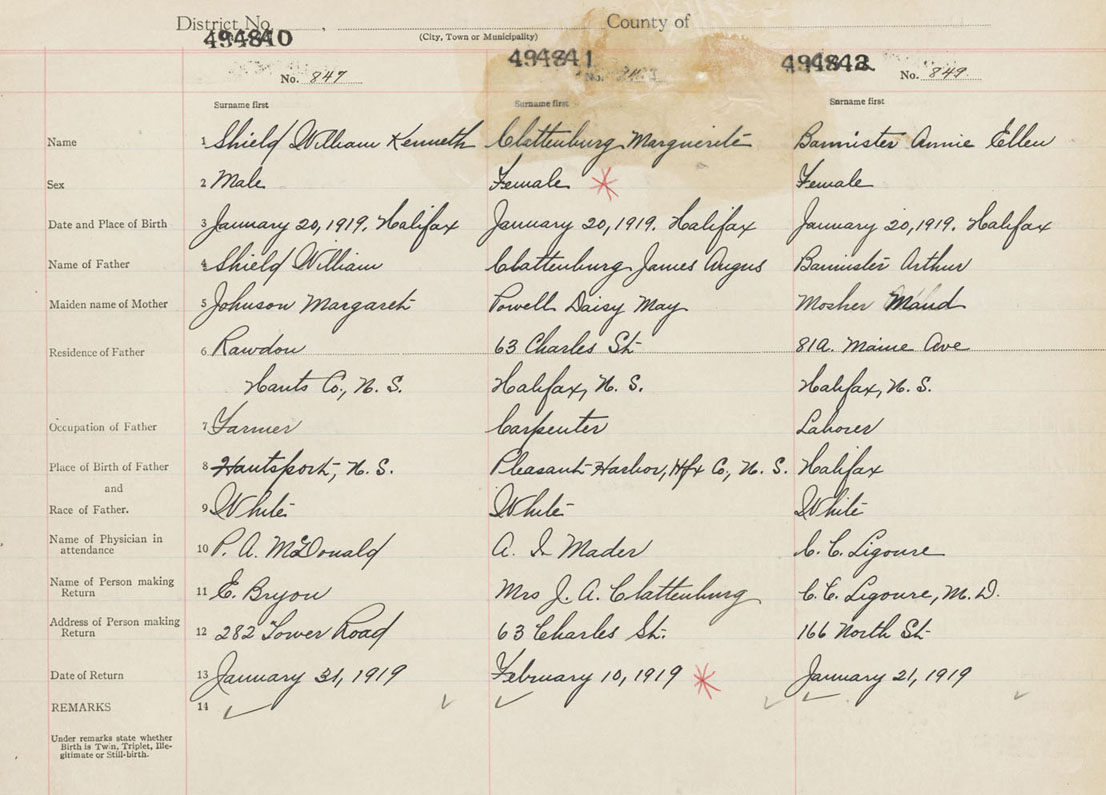 District No. County of
(City, Town or Municipality)
494840 494841 494842
No. 847 No. No. 849
Surname first Surname first Surname first
Name 1 Shield William Kenneth Clattenburg Marguerite Bannister Annie Ellen
Sex 2 Male Female Female
Date and Place of Birth 3 January 20, 1919. Halifax January 20, 1919. Halifax January 20, 1919. Halifax
Name of Father 4 Shield William Clattenburg James Angus Bannister Arthur
Maiden name of Mother 5 Johnson Margaret Powell Daisy May Mosher Maud
Residence of Father 6 Rawdon 63 Charles St. 81a. Maine Ave
Hants Co., N. S. Halifax, N. S. Halifax, N. S.
Occupation of Father 7 Farmer Carpenter Laborer
Place of Birth of Father 8 Hantsport, N. S. Pleasant Harbor, Hfx Co., N. S. Halifax
and
Race of Father. 9 White White White
Name of Physician in
attendance 10 P. A. McDonald A. I. Mader C. C. Ligoure
Name of Person making
Return 11 E. Bryon Mrs J. A. Clattenburg C. C. Ligoure, M. D.
Address of Person making
Return 12 282 Tower Road 63 Charles St. 166 North St.
Date of Return 13 January 31, 1919 February 10, 1919 January 21, 1919
REMARKS 14
Under remarks state whether
Birth is Twin, Triplet, Ille-
gitimate or Still-birth.